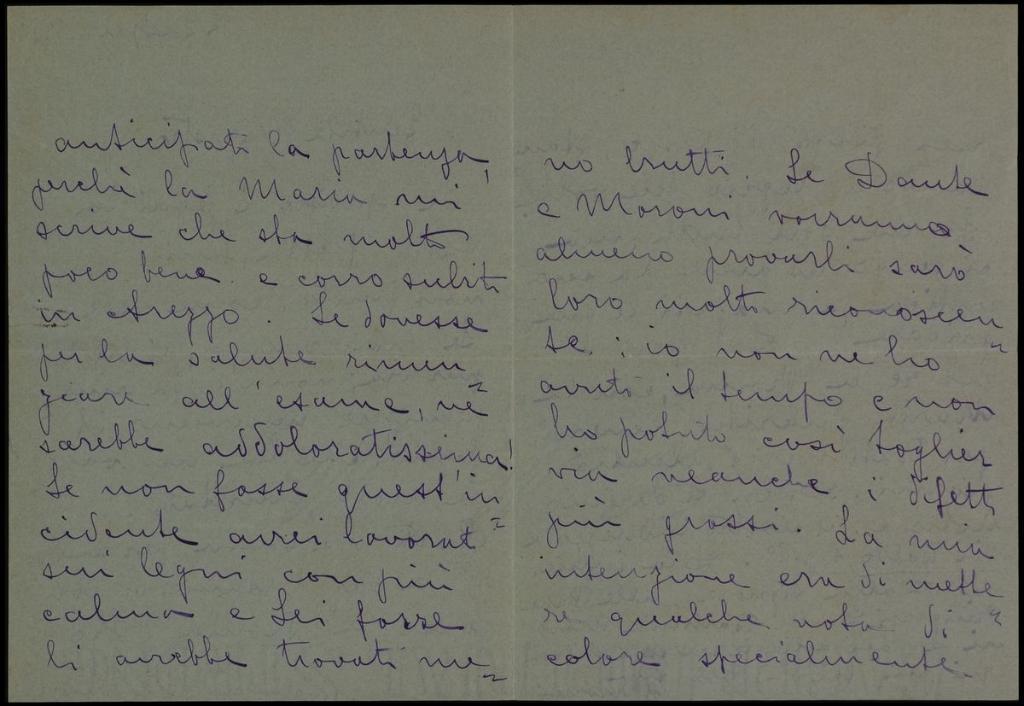 anticipati la partenza,
perchè la Maria mi
scrive che sta molto
poco bene e corro subito
in Arezzo. Se dovesse
per la salute rinun=
ziare all'esame, ne
sarebbe addoloratissima!
Se non fosse quest'in=
cidente avrei lavorato
sui legni con più
calma e Lei forse
li avrebbe trovati me=
no brutti. Se Dante
e Moroni vorranno
almeno provarli sarò
loro molto riconoscen=
te; io non ne ho
avuto il tempo e non
ho potuto così toglier
via neanche i difetti
più grossi. La mia
intenzione era di mette=
re qualche nota di
colore specialmente